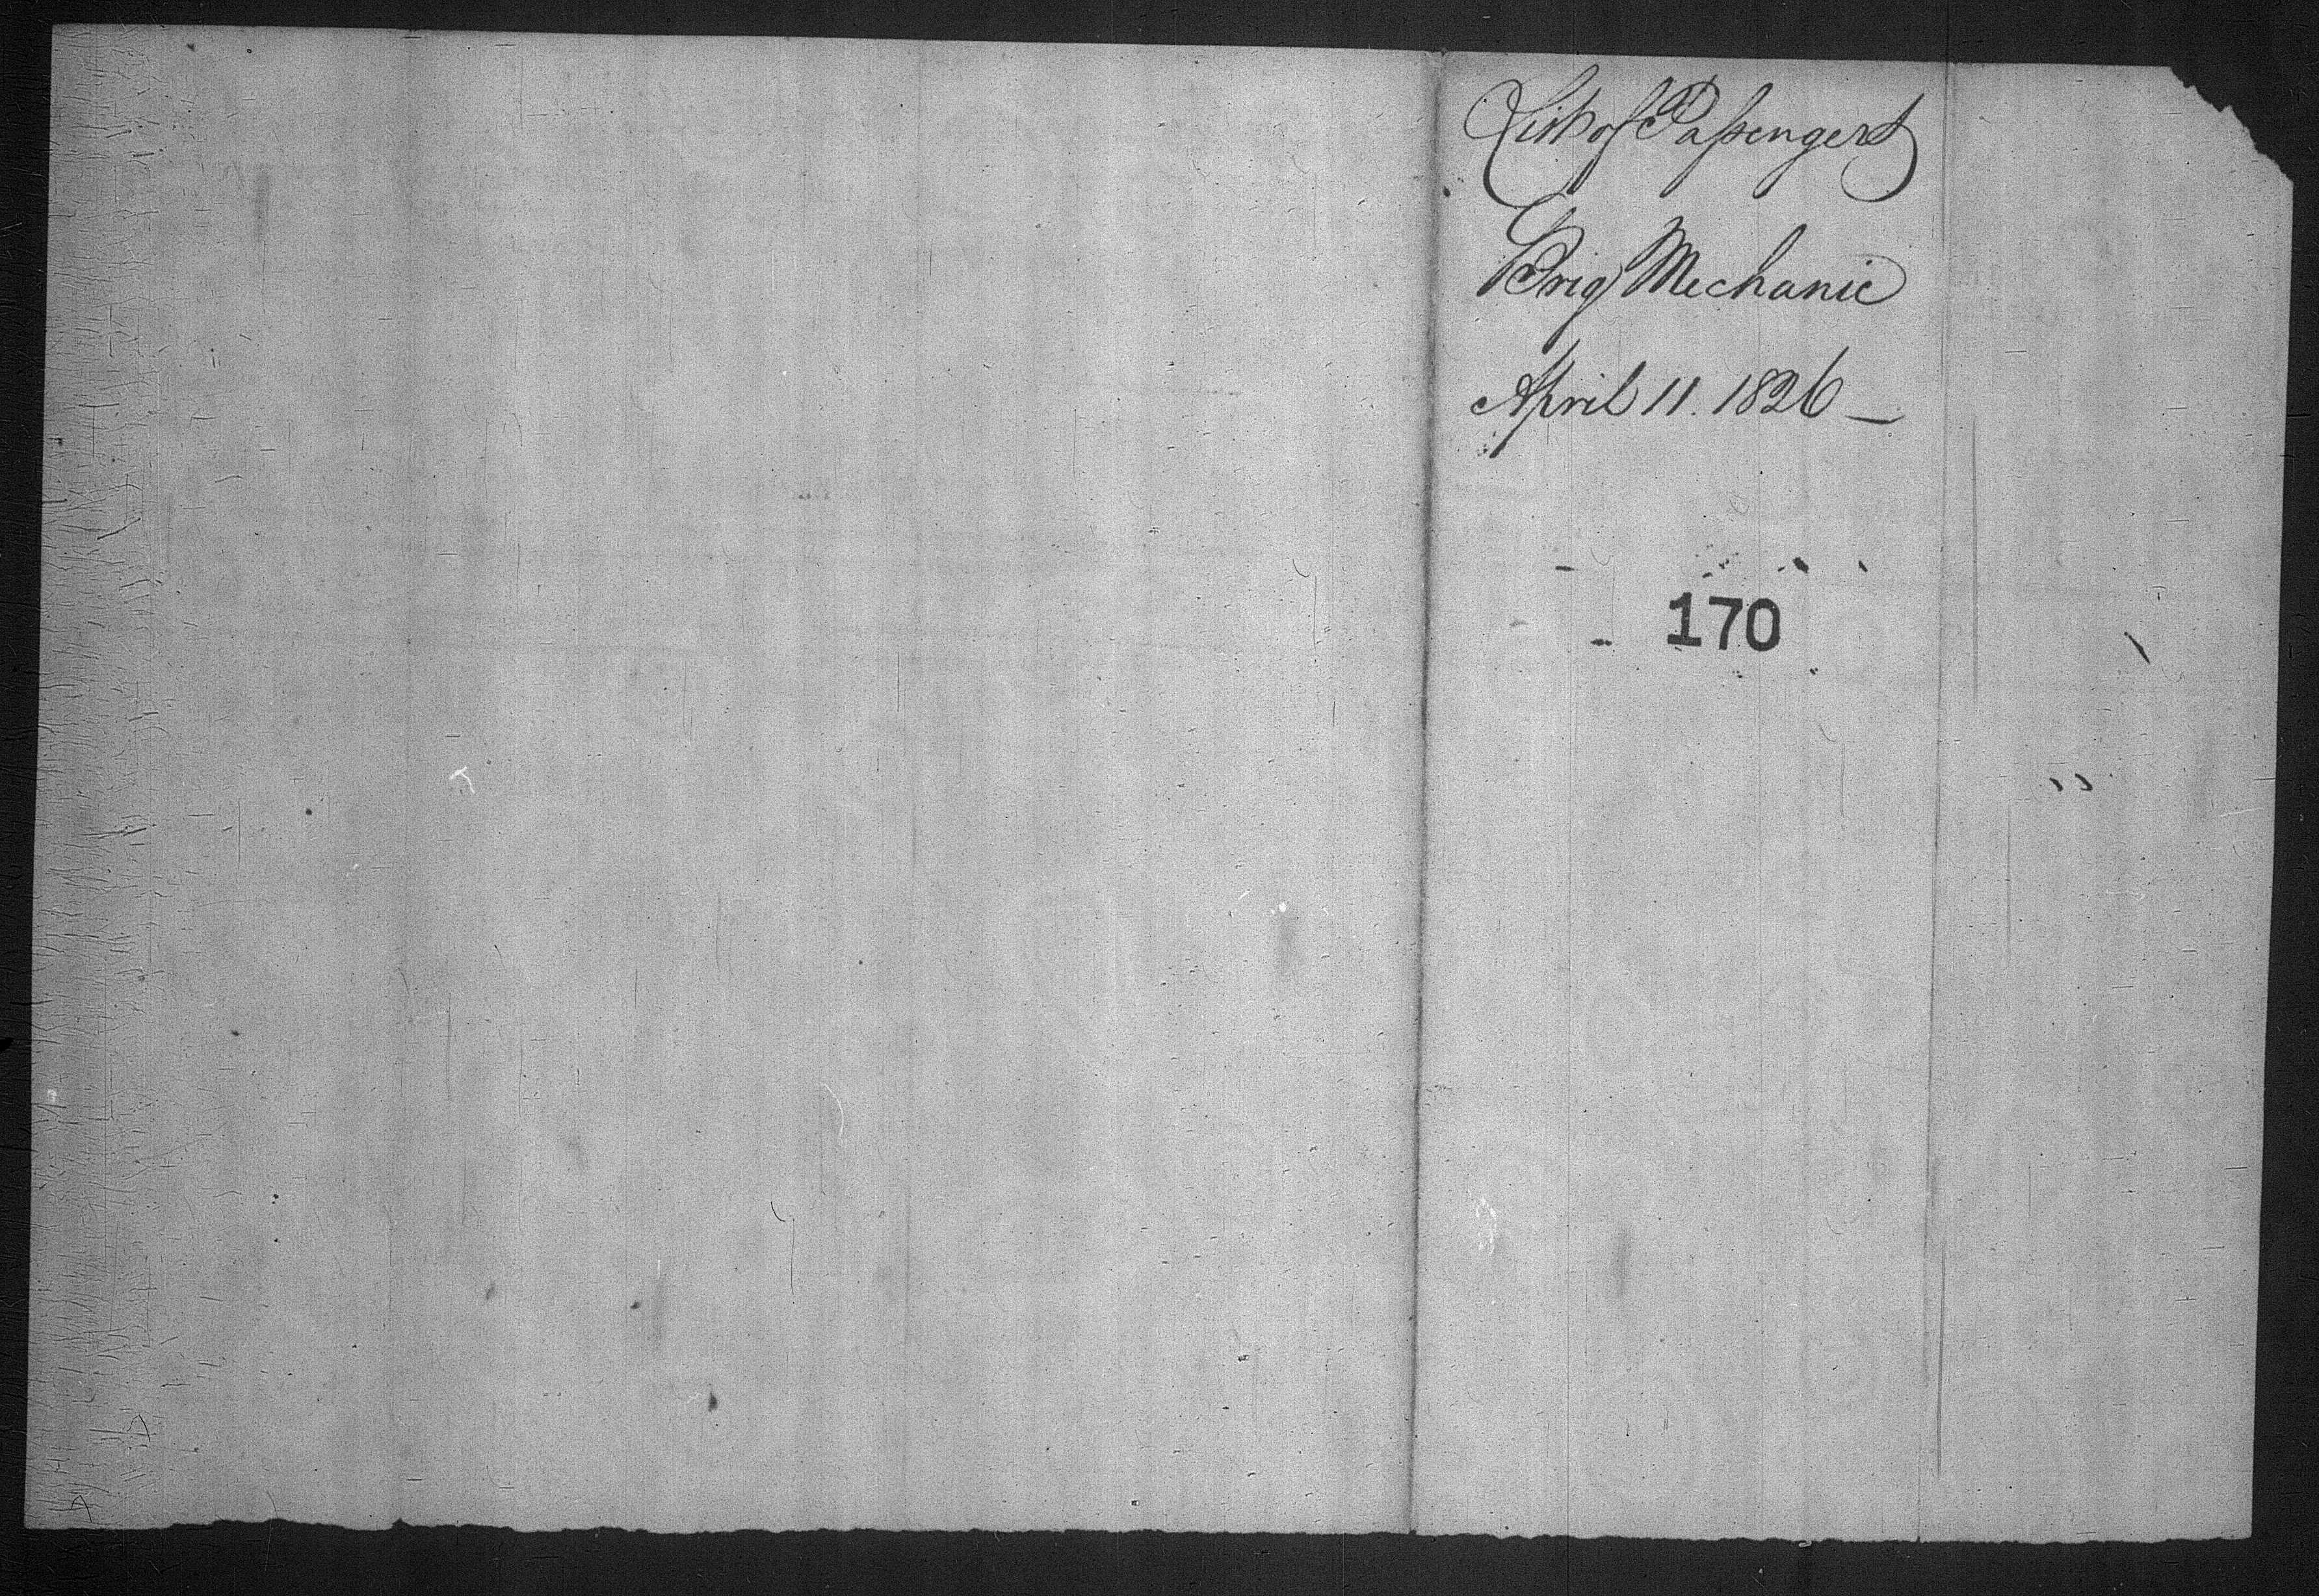 List of Passengers
Brig Mechanic
April 11. 1826 —
170